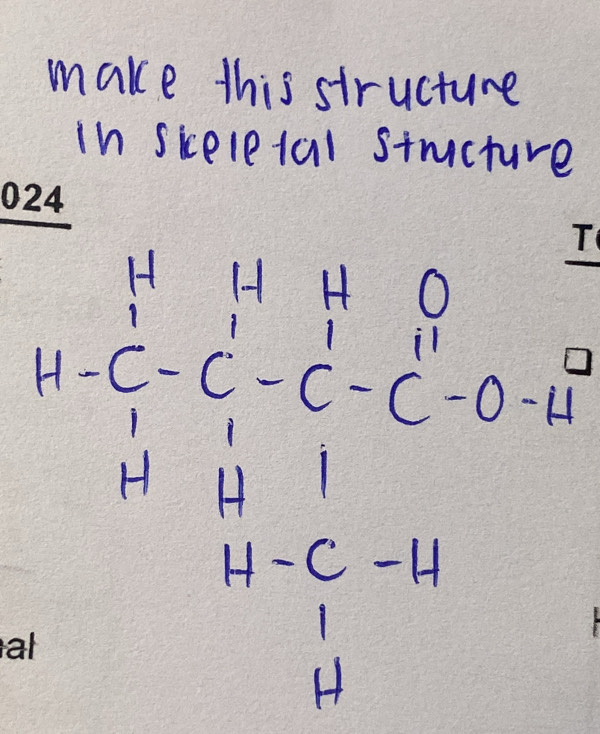 make this structure
in skeletal structure
024
T
H H H O
H-C-C-C-C-O-H
H H
H-C-H
H
al